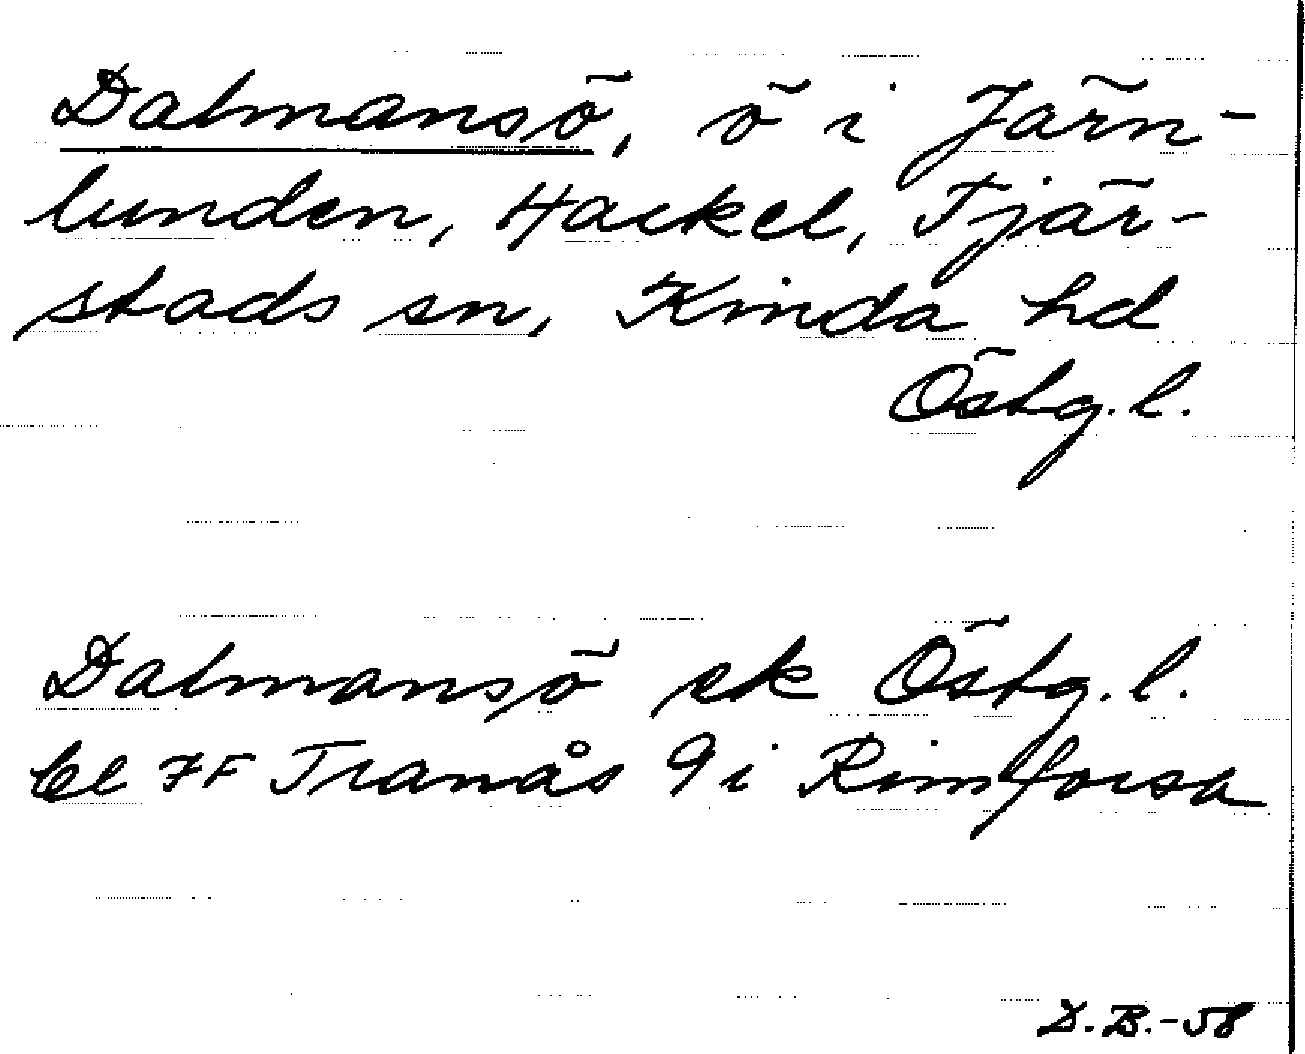 Dalmansö, ö i Järn-
lunden, Hackel, Tjär-
stads sn, Kinda hd
Östg. l.
Dalmansö ek Östg. l.
bl 7F Tranås 9 i Rimforsa
D.B.-58